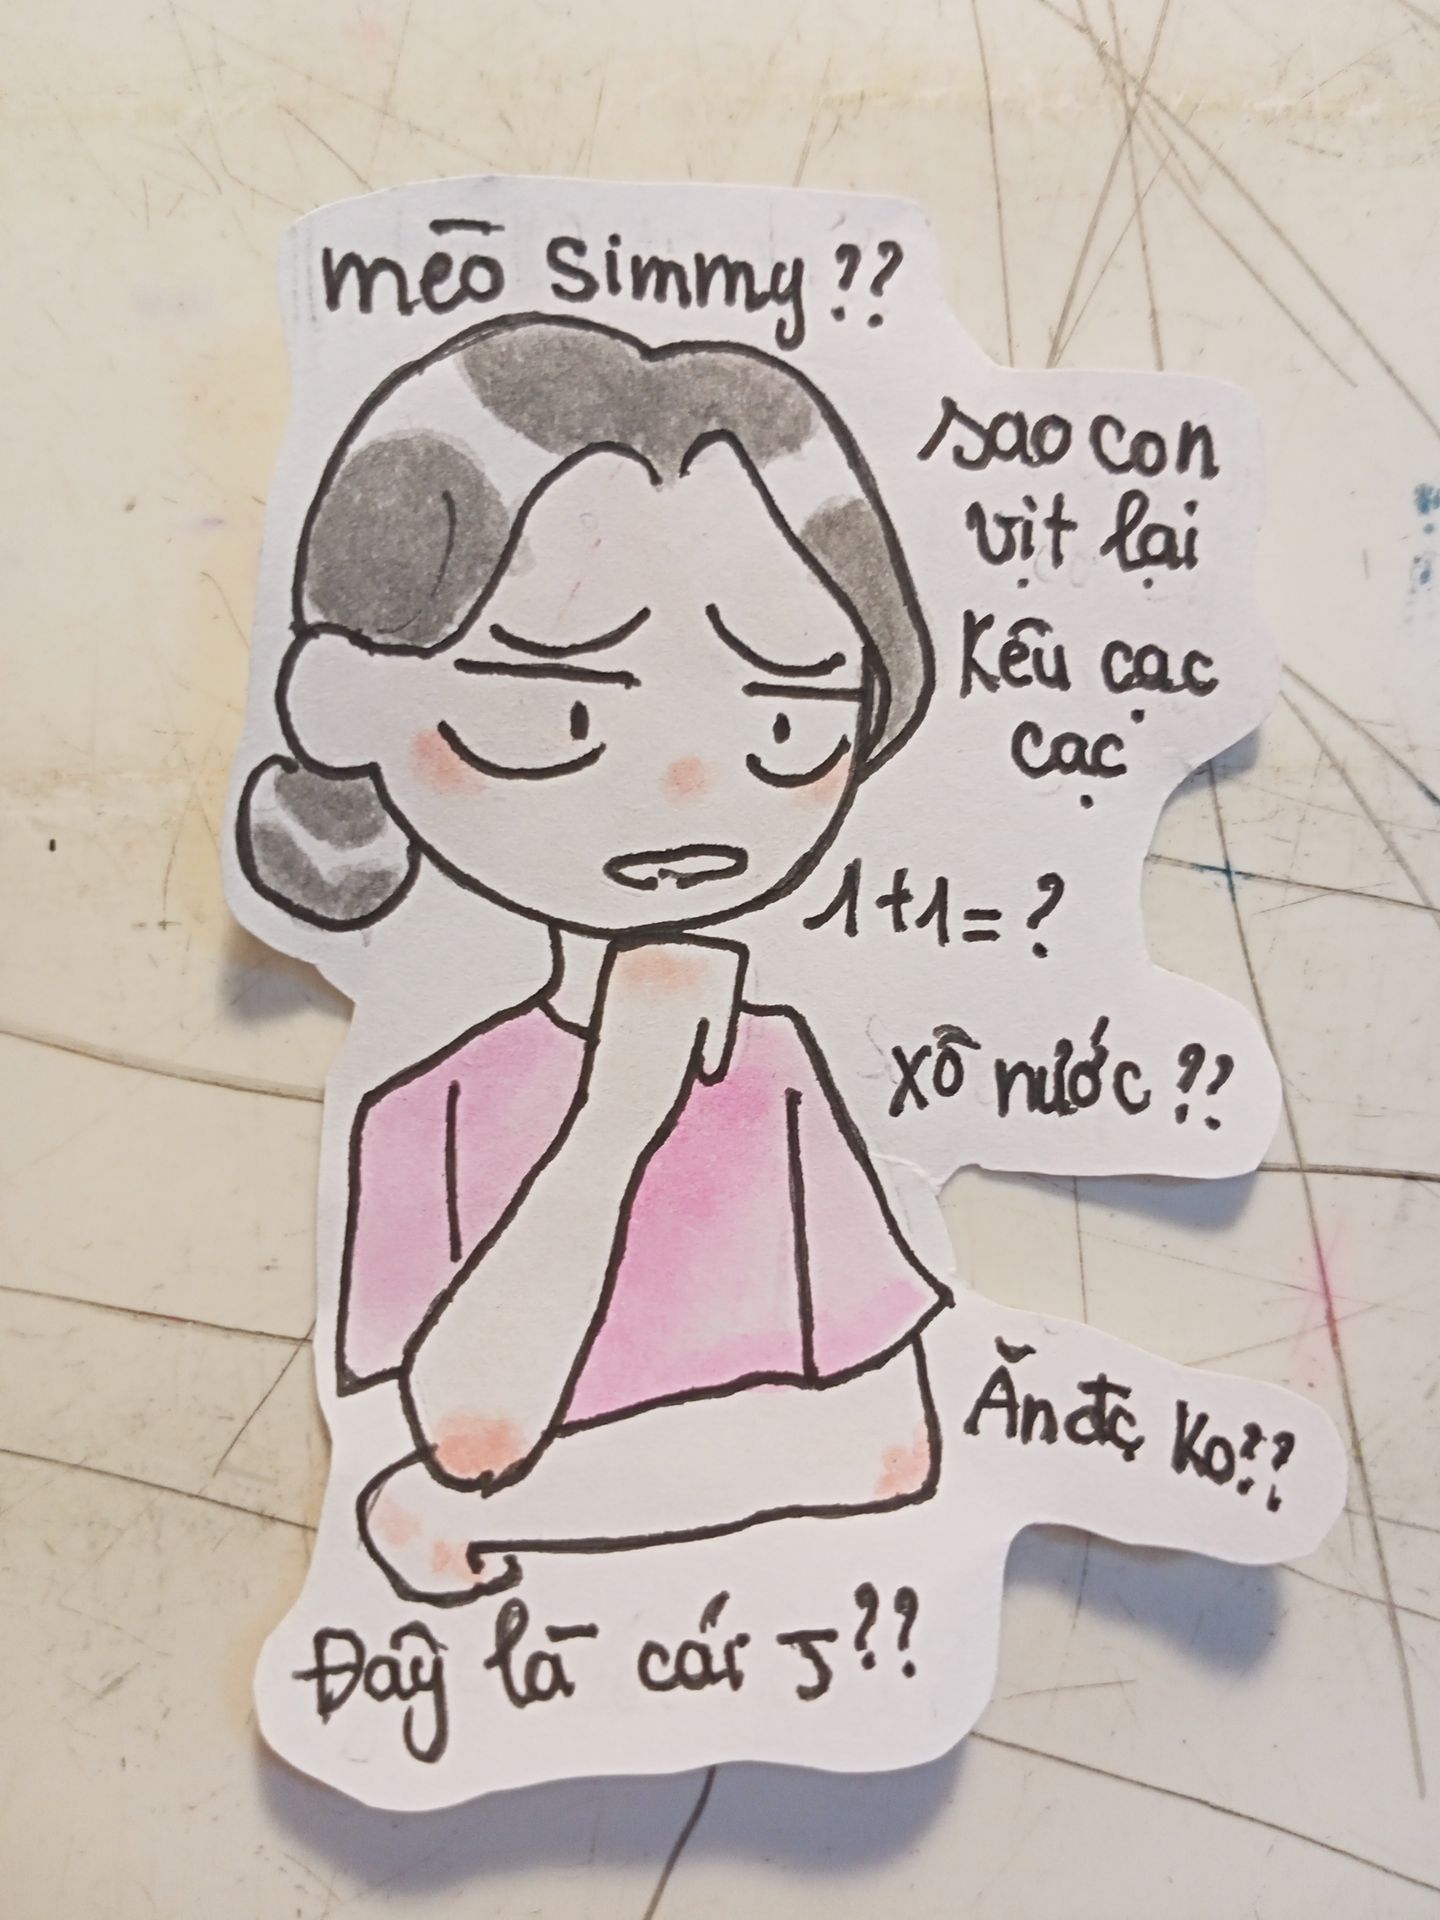 mèo simmy??
sao con
vịt lại
kêu cạc
cạc
1+1=?
xô nước??
Ăn đc ko??
Đây là cái j??